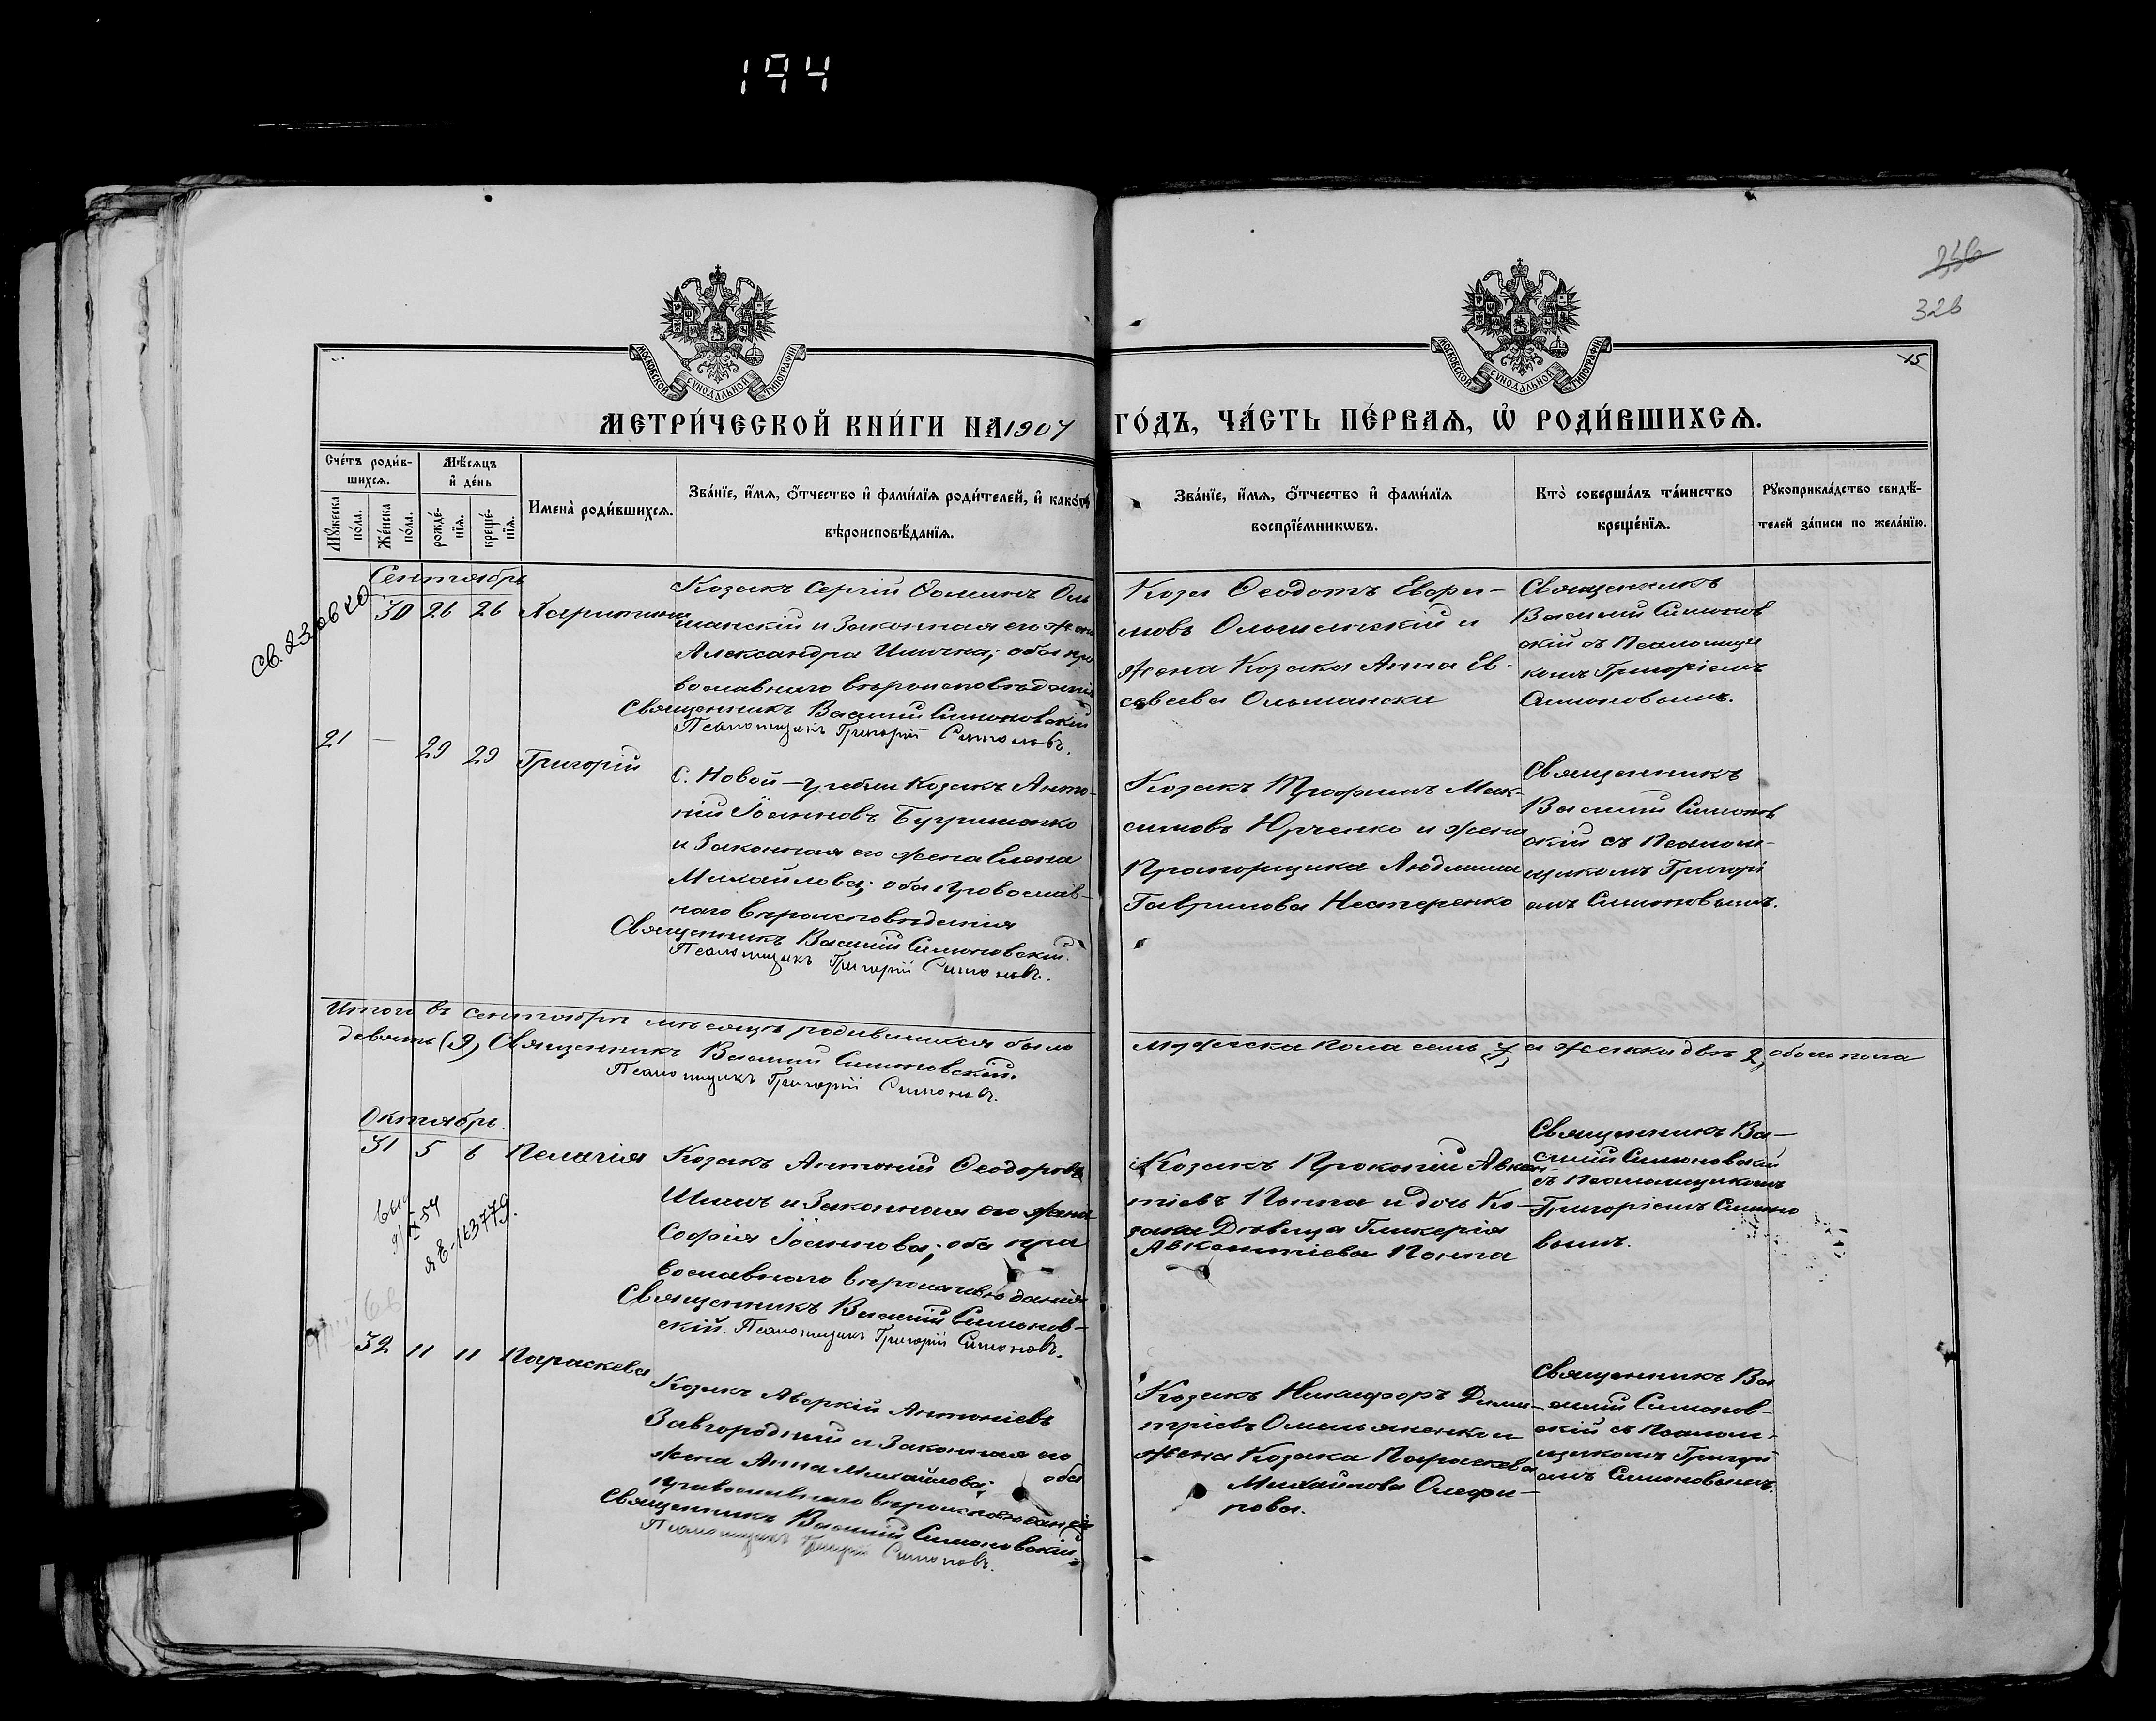 194
326
15
МОСКОВСКОЙ СѴНОДАЛЬНОЙ ТИПОГРАФІИ
МОСКОВСКОЙ СѴНОДАЛЬНОЙ ТИПОГРАФІИ
МЕТРИ́ЧЕСКОЙ КНИ́ГИ НА 1907 ГО́ДЪ, ЧА́СТЬ ПЕ́РВАѦ, Ѽ РОДИ́ВШИХСѦ.
Сче́тъ роди́в-
шихсѧ.
Мꙋ́жеска по́ла.
Же́нска по́ла.
Мѣ́сѧцъ
и҆ де́нь
рожде́-
нїѧ.
креще́-
нїѧ.
Имена̀ роди́вшихсѧ.
Зва́нїе, и҆́мѧ, ѻ҆́тчество и҆ фами́лїѧ роди́телей, и҆ како́гѡ
вѣроисповѣ́данїѧ.
Зва́нїе, и҆́мѧ, ѻ҆́тчество и҆ фами́лїѧ
воспрїе́мникѡвъ.
Кто̀ соверша́лъ та́инство
креще́нїѧ.
Рꙋкоприкла́дство свидѣ́-
телей за́писи по жела́нїю.
Сентябрь
30 26 26 Харитина
Козакъ Сергій Ѳоминъ Оль
шанскій и Законная его жена
Александра Ильина; оба пра
вославнаго вѣроисповѣданія
Священникъ Василій Симоновскій
Псаломщикъ Григорій Симоновъ.
Козак Ѳеодотъ Евфи-
мовъ Ольшанскій и
жена Козака Анна Ев-
севиева Ольшанска
Священникъ
Василій Симонов
скій съ Псаломщи
комъ Григоріемъ
Симоновымъ.
21 — 29 29 Григорій
С. Новой-Гребли Козакъ Анто-
ній Іоанновъ Бугрименко
и Законная его жена Елена
Михайлова; оба православ-
наго вѣроисповѣданія
Священникъ Василій Симоновскій.
Псаломщикъ Григорій Симоновъ.
Козакъ Трофимъ Мак-
симовъ Юрченко и жена
Прапорщика Людмила
Гаврилова Нестеренко
Священникъ
Василій Симонов
скій съ Псалом-
щикомъ Григорі
емъ Симоновымъ.
Итого въ сентябрѣ мѣсяцѣ родившихся было мужеска пола семь 7, а женска двѣ 2, обоего пола
девять (9) Священникъ Василій Симоновскій.
Псаломщикъ Григорій Симоновъ.
Октябрь.
31 5 6 Пелагія
Козакъ Антоній Ѳеодоровъ
и Законная его жена
Софія Іоаннова; оба пра
вославнаго вѣроисповѣданія
Священникъ Василій Симонов-
скій. Псаломщикъ Григорій Симоновъ.
Козакъ Прокопій Авксен-
тіевъ Поппа и дочь Ко-
зака Дѣвица Гликерія
Авксентіева Поппа
Священникъ Ва-
силій Симоновскій
съ Псаломщикомъ
Григоріемъ Симоно
вымъ.
32 11 11 Параскева
Козакъ Аверкій Антоніевъ
Завгородній и Законная его
жена Анна Михайлова; оба
православнаго вѣроисповѣданія
Священникъ Василій Симоновскій
Псаломщикъ Григорій Симоновъ.
Козакъ Никифоръ Дими-
тріевъ Омельяненко и
жена Козака Параскева
Михайлова Олефи-
рова.
Священникъ Ва
силій Симонов-
скій съ Псалом-
щикомъ Григорі
емъ Симоновымъ.